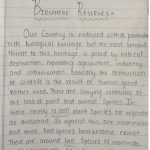 Biosphere Reserves
Our Country is endowed with a
biological heritage but the most
threat to this heritage is posed by habitat
destruction, expanding agriculture, Industry
and urbanisation. basically the destruction
of wildlife is the result of human greed
rather need. There are varying estimates
of the loss of plant and animal species In
India, nearly plant species are regarded
as threatened. At against this, one mammalian
and more bird species have become extinct.
there are around species of mammals,